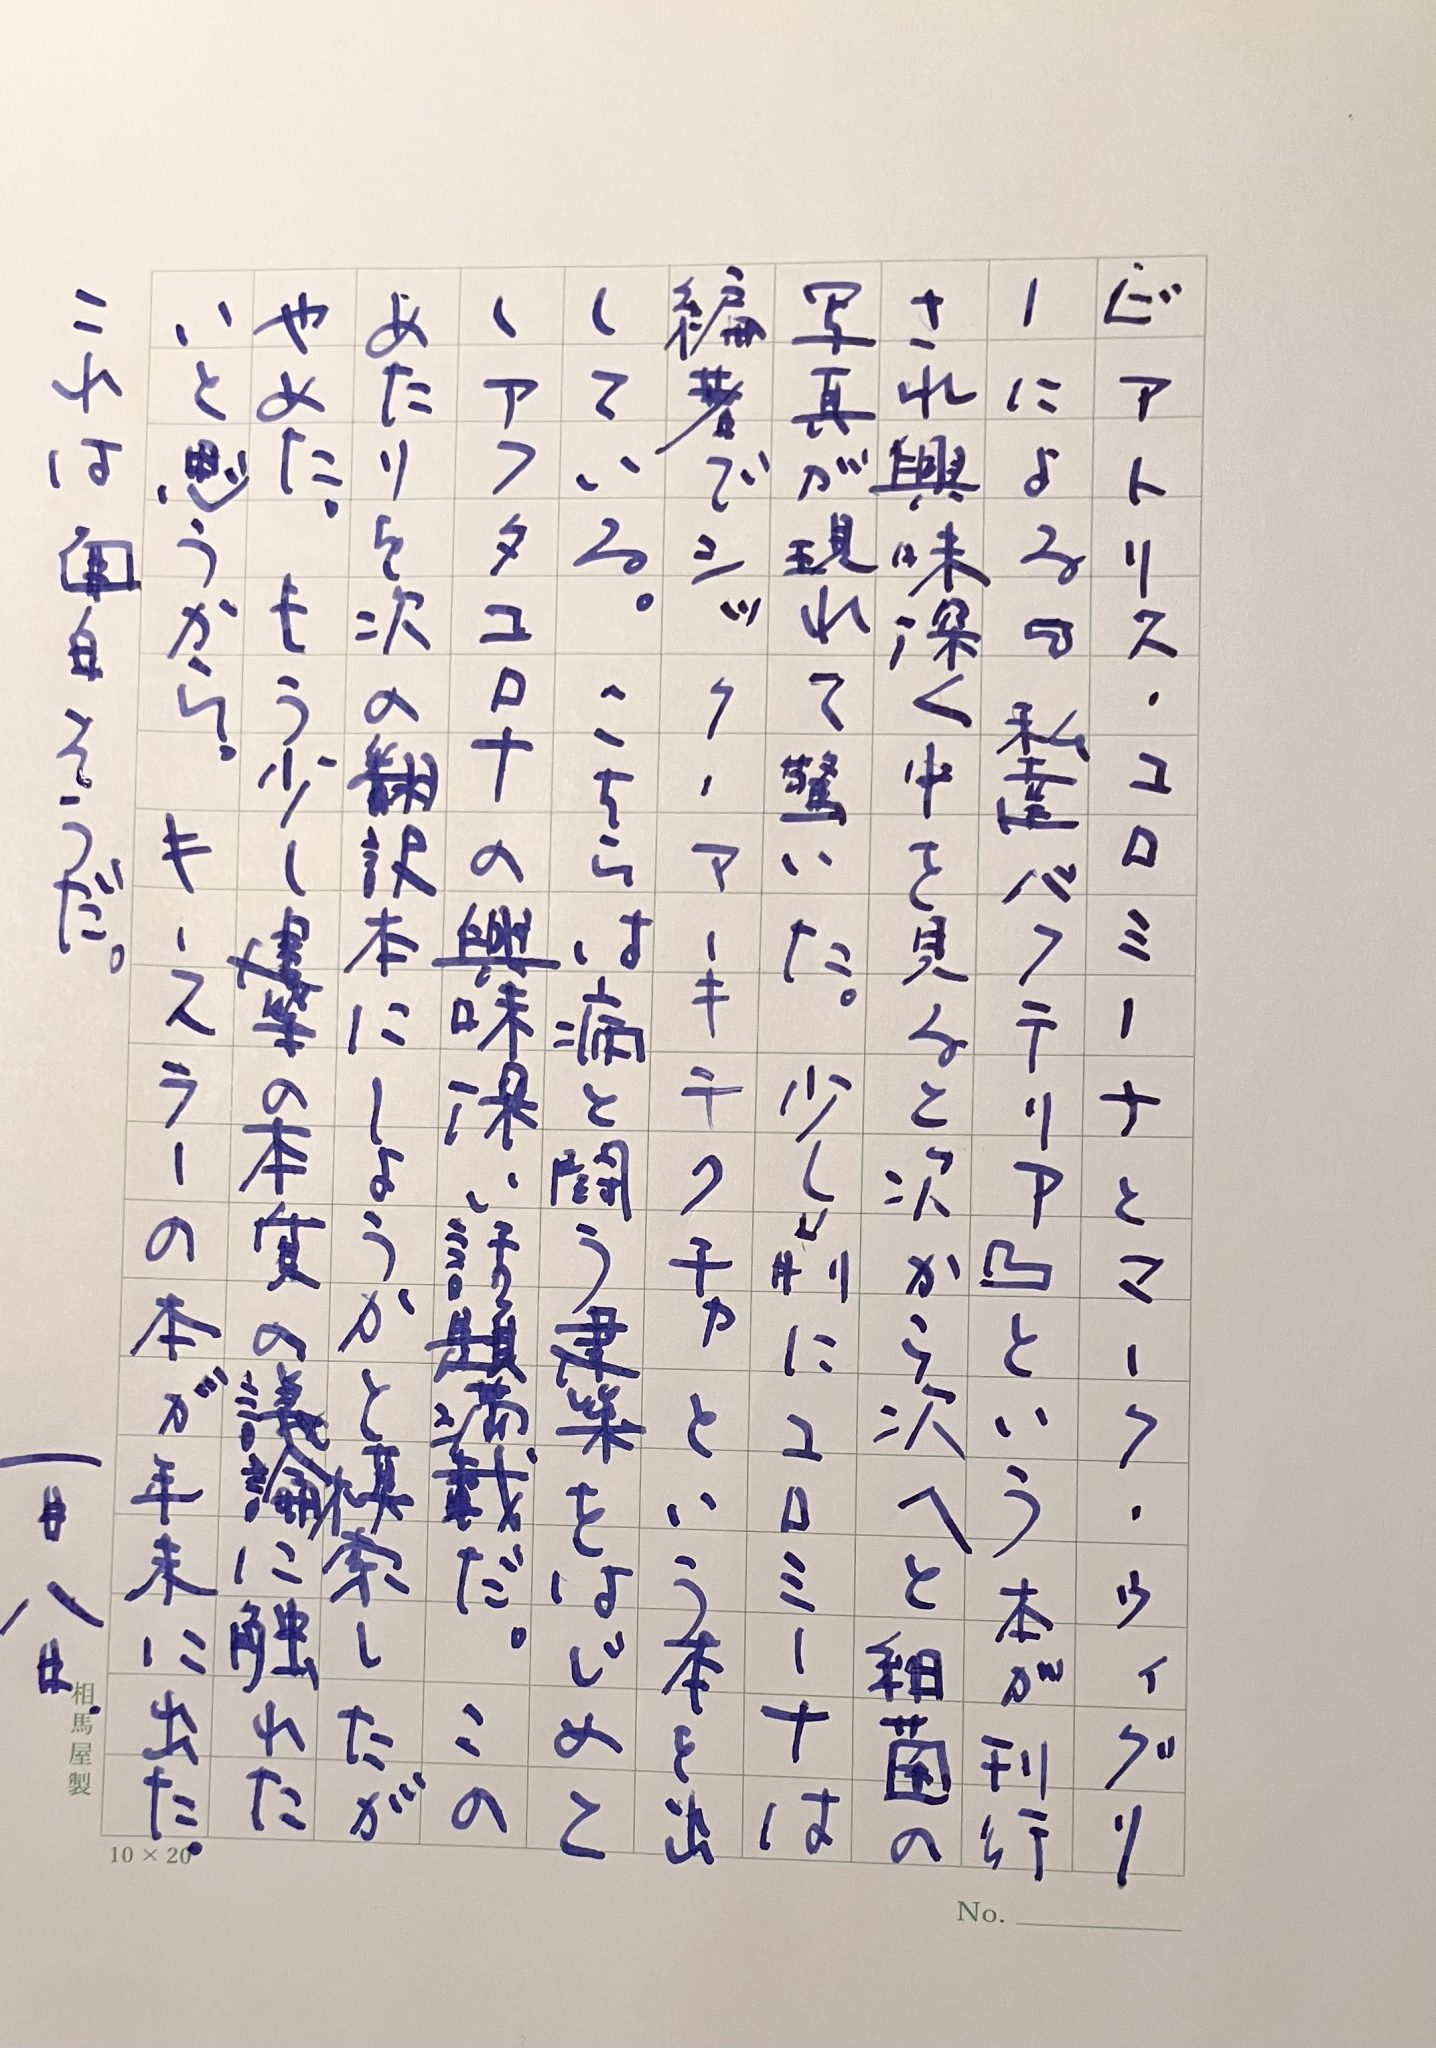 ビアトリス・コロミーナとマーク・ウィグリ
ーによる凹私達バクテリア凸という本が刊行
され興味深く中を見ると次から次へと細菌の
写真が現れて驚いた。少し前にコロミーナは
編著でシック・アーキテクチャという本を出
している。こちらは病と闘う建築をはじめと
しアフタコロナの興味深い話題満載だ。この
あたりを次の翻訳本にしようかと模索したが
やめた。もう少し建築の本質の議論に触れた
いと思うから。キースラーの本が年末に出た。
これは面白そうだ。
一月八日
相馬屋製
10×20
No.